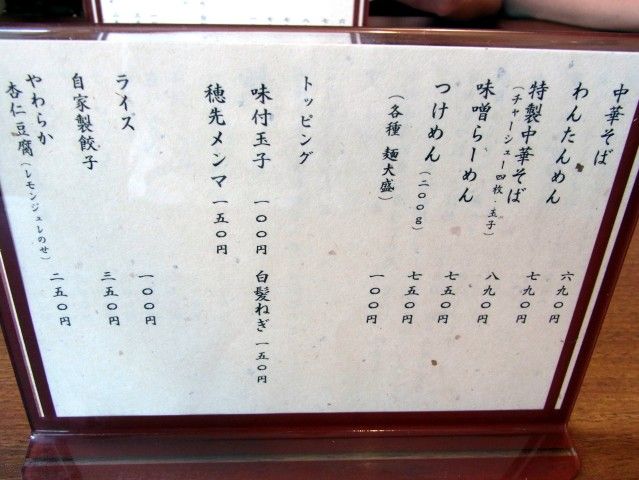 中華そば 六九〇円
わんたんめん 七九〇円
特製中華そば 八九〇円
(チャーシュー四枚・玉子)
味噌らーめん 七五〇円
つけめん(二〇〇g) 七五〇円
(各種 麺大盛) 一〇〇円
トッピング
味付玉子 一〇〇円 白髪ねぎ 一五〇円
穂先メンマ 一五〇円
ライズ 一〇〇円
自家製餃子 三五〇円
やわらか
杏仁豆腐(レモンジュレのせ) 二五〇円